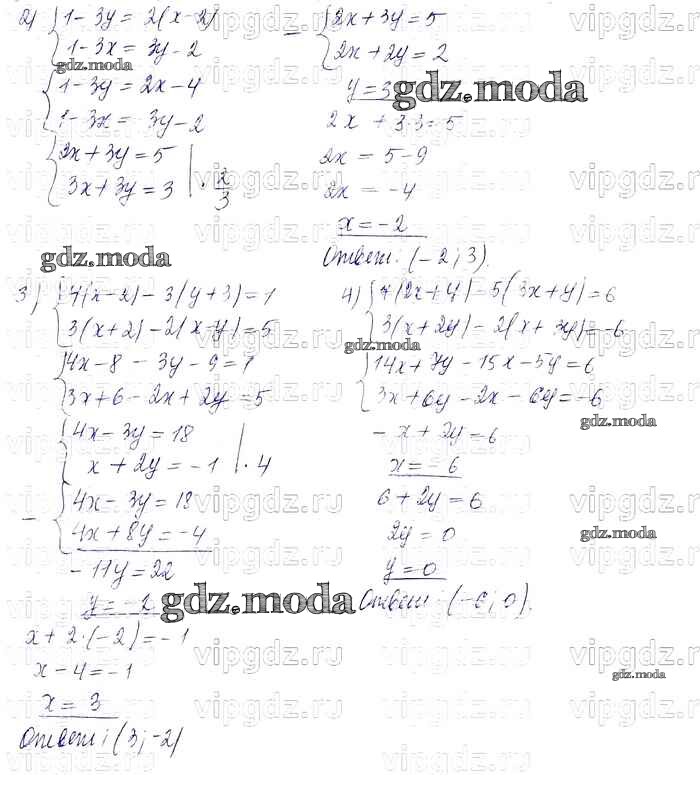 2) { 1-3y = 2(x-2)
1-3x = 3y-2
{ 1-3y = 2x-4
1-3x = 3y-2
{ 2x+3y = 5
3x+3y = 3 | · 2/3
- { 2x+3y = 5
2x+2y = 2
y = 3
2x + 3·3 = 5
2x = 5-9
2x = -4
x = -2
Ответ: (-2; 3).
3) { 4(x-2) - 3(y+3) = 1
3(x+2) - 2(x-y) = 5
{ 4x-8 - 3y-9 = 1
3x+6 - 2x+2y = 5
{ 4x-3y = 18
x+2y = -1 | · 4
- { 4x-3y = 18
4x+8y = -4
-11y = 22
y = -2
x+2·(-2) = -1
x-4 = -1
x = 3
Ответ: (3; -2)
4) { 7(2x+y) - 5(3x+y) = 6
3(x+2y) - 2(x+3y) = -6
{ 14x+7y - 15x-5y = 6
3x+6y - 2x - 6y = -6
-x+2y = 6
x = -6
6+2y = 6
2y = 0
y = 0
Ответ: (-6; 0).
gdz.moda
vipgdz.ru